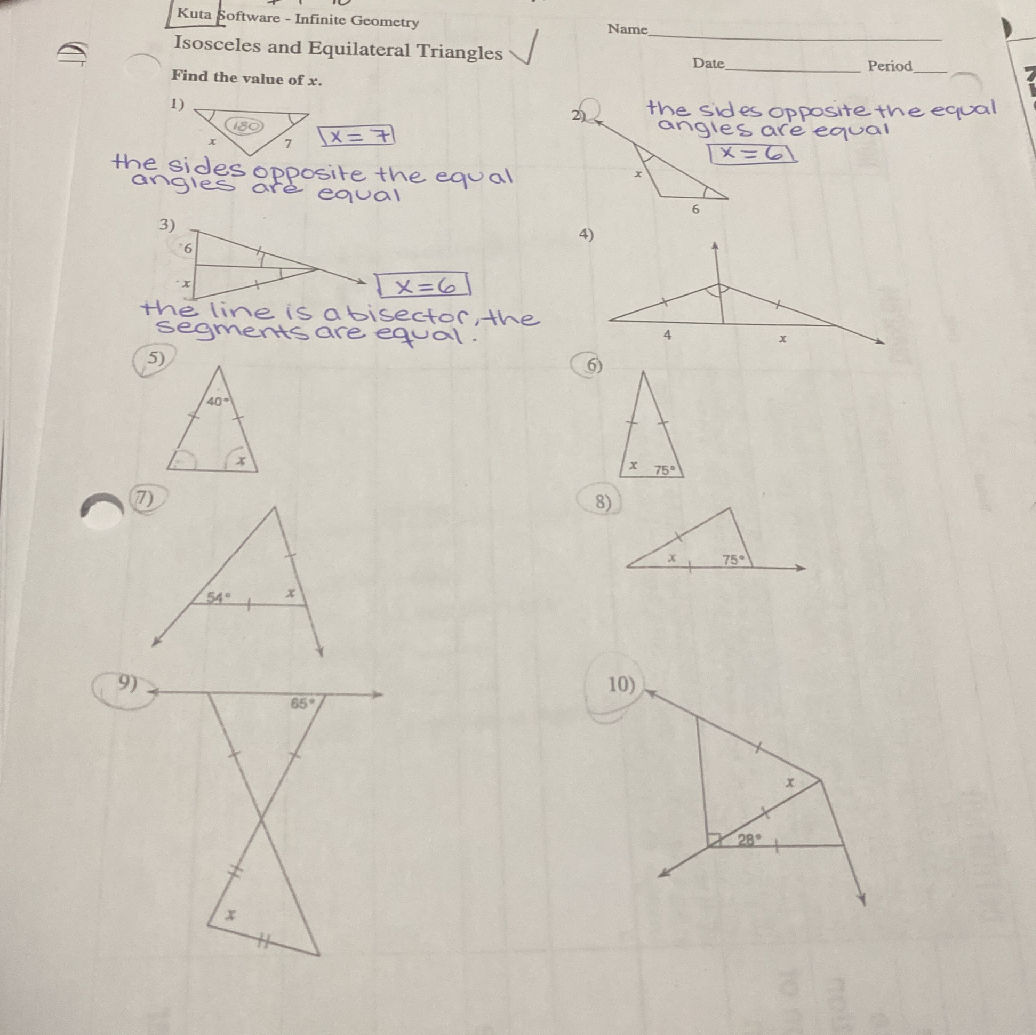 Kuta Software - Infinite Geometry
Name
Isosceles and Equilateral Triangles
Date Period
Find the value of x.
1)
180
x
7
x = 7
the sides opposite the equal
angles are equal
2)
the sides opposite the equal
angles are equal
x = 6
x
6
3)
6
x
x = 6
the line is a bisector, the
segments are equal.
4)
4
x
5)
40°
x
6)
x 75°
7)
54°
x
8)
x
75°
9)
65°
x
10)
x
28°